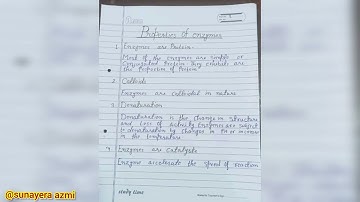 Properties of enzymes
1. Enzymes are Protein -
Most of the enzymes are simple or
Conjugated Protein. They exhibit are
the Properties of Protein
2 Colloids
Enzymes are colloidal in nature
3 Denaturation
Denaturation is the changes in structure
and Loss of activity Enzymes are subject
to denaturation by changes in PH or increase
in the temperature
4. Enzymes are Catalysts
Enzyme accelerate the speed of reaction
study time
@sunayera azmi